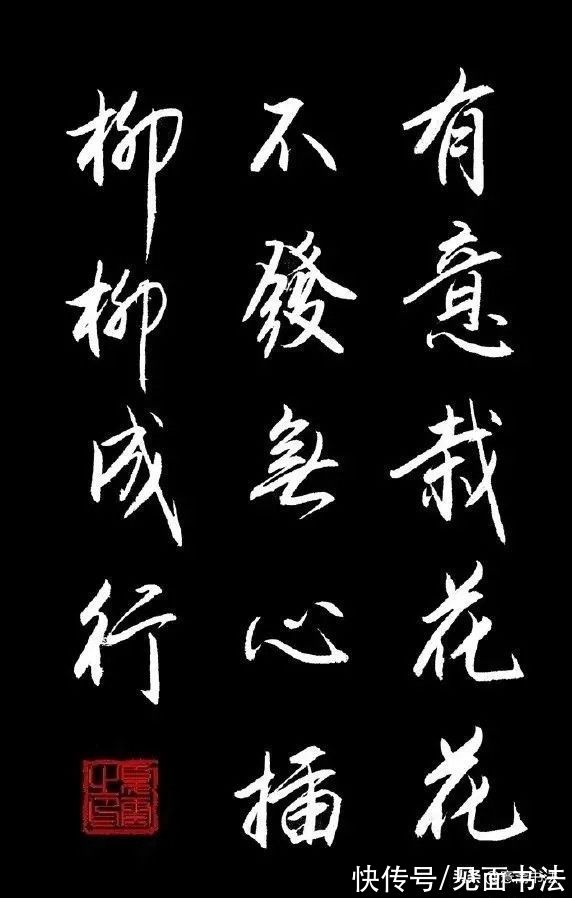 有意栽花花
不發無心插
柳柳成行
快传号/见面书法